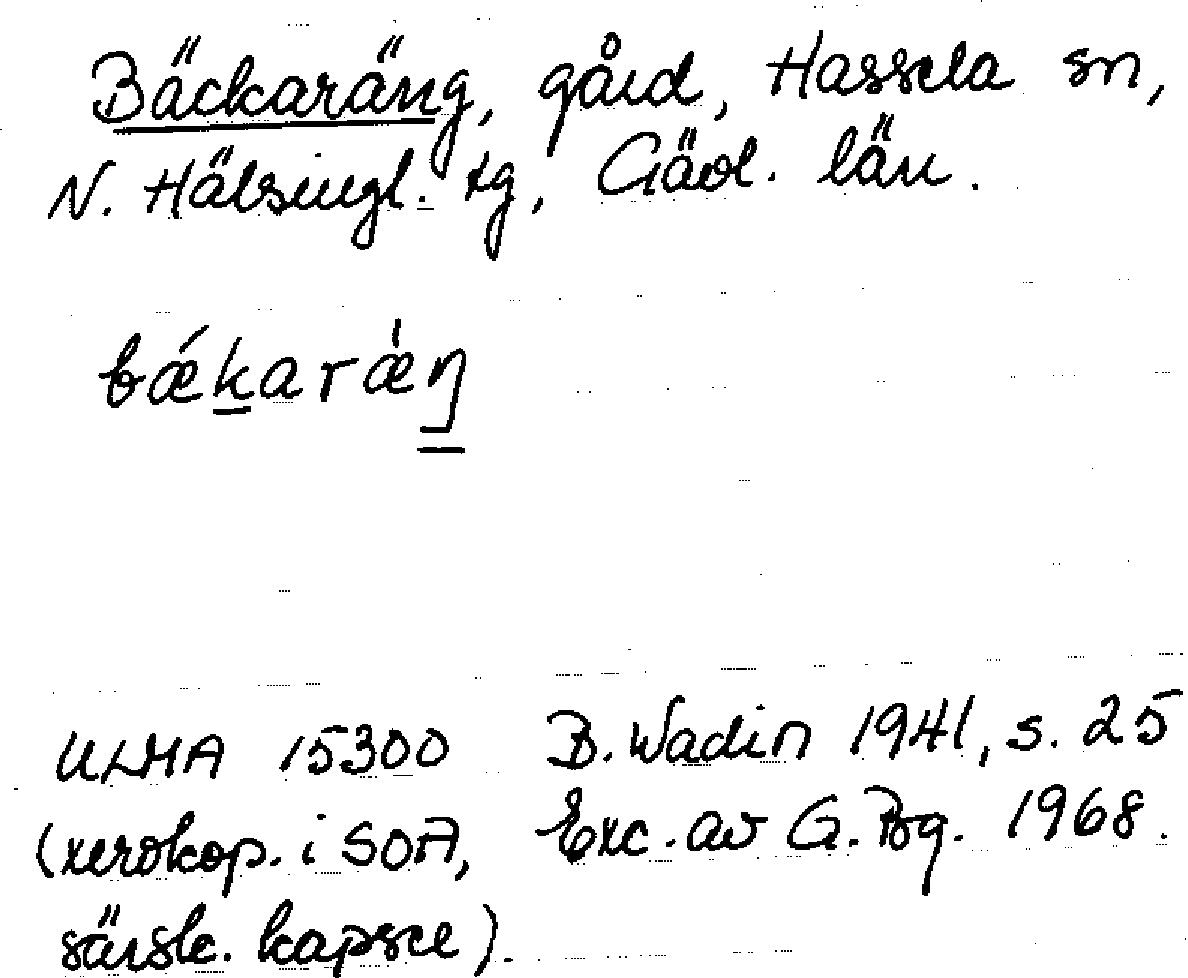 Bäckaräng, gård, Hassela sn,
N. Hälsingl. tg, Gävl. län.
bǽkarǽŋ
ULMA 15300 B. Wadin 1941, s. 25
(xerokop. i SOA, Exc. av G. Bg. 1968.
särsk. kapsel).